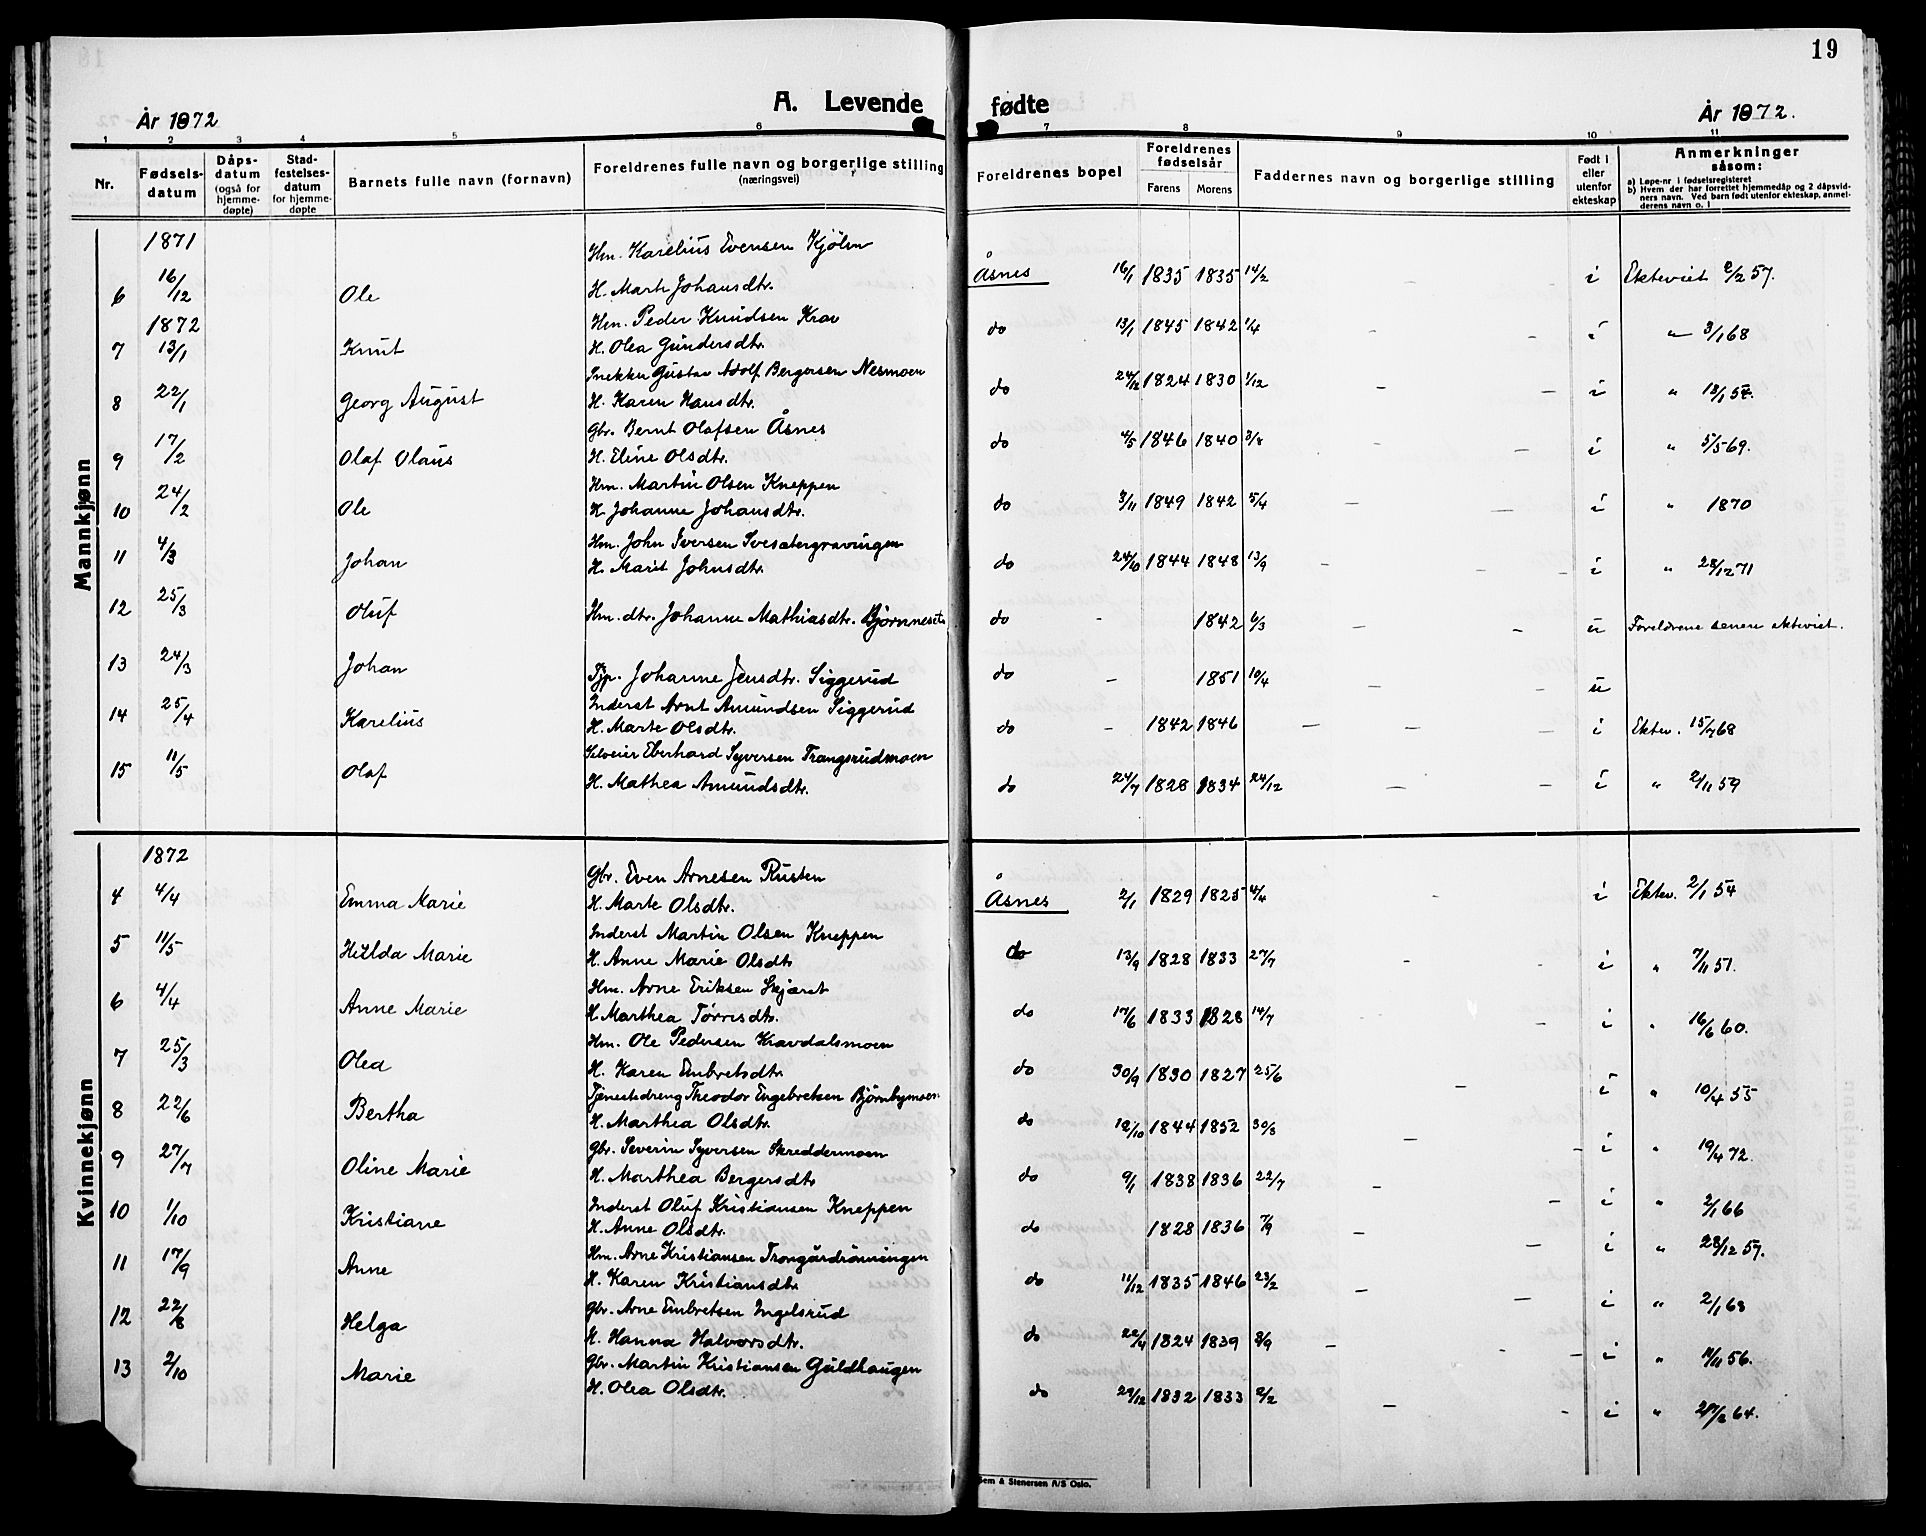 19
A. Levende fødte
År 1872
År 1872.
1 2 3 4 5 6 7 8 9 10 11
Nr.
Fødsels-
datum
Dåps-
datum
(også for
hjemme-
døpte)
Stad-
festelses-
datum
for hjemme-
døpte
Barnets fulle navn (fornavn)
Foreldrenes fulle navn og borgerlige stilling
(næringsvei)
Foreldrenes bopel
Foreldrenes
fødselsår
Farens Morens
Faddernes navn og borgerlige stilling
Født i
eller
utenfor
ekteskap
Anmerkninger
såsom:
a) Løpe-nr i fødselsregisteret
b) Hvem der har forrettet hjemmedåp og 2 dåpsvid-
ners navn. Ved barn født utenfor ekteskap, anmel-
derens navn o. l
Mannkjønn
1871
Hm. Karelius Evensen Kjølen
6 16/12 Ole H. Marte Johansdtr. Åsnes 16/1 1835 1835 14/2 i Ekteviet 2/2 57.
1872
Hm. Peder Knudsen Krav
7 13/1 Knut H. Olea Gundersdtr. do 13/1 1845 1842 1/4 - - i " 3/1 68
Snekker Gustav Adolf Bergersen Nesmoen
8 22/1 Georg August H. Karen Hansdtr. do 24/12 1824 1830 1/12 - - i " 13/1 54.
Gbr. Bernt Olafsen Åsnes
9 17/2 Olaf Olaus H. Eline Olsdtr. do 4/5 1846 1840 3/8 - i " 5/5 69.
Hm. Martin Olsen Kneppen
10 24/2 Ole H. Johanne Johansdtr. do 3/11 1849 1842 5/4 - - i " 1870
Hm. John Iversen Svesætergravingen
11 4/3 Johan H. Marit Johnsdtr. do 24/10 1844 1848 13/9 - - i " 28/12 71
12 25/3 Oluf Hm. dtr. Johanne Mathiasdtr. Bjørnneset do - 1842 6/3 - - u Foreldrene senere ekteviet.
13 24/3 Johan Tjp. Johanne Jensdtr. Siggerud do - 1851 10/4 - - u
Inderst Arnt Amundsen Siggerud
14 25/4 Karelius H. Marte Olsdtr. do - 1842 1846 - - - i Ektev. 15/7 68
Selveier Eberhard Syversen Trangsrudmoen
15 11/5 Olaf H. Mathea Amundsdtr. do 24/7 1828 1834 24/12 - - i " 2/11 59
Kvinnekjønn
1872
Gbr. Even Arnesen Rusten
4 4/4 Emma Marie H. Marte Olsdtr. Åsnes 2/1 1829 1825 4/4 - i Ektev. 2/1 54
Inderst Martin Olsen Kneppen
5 11/5 Hilda Marie H. Anne Marie Olsdtr do 13/9 1828 1833 27/7 - - i " 7/11 51.
Hm. Arne Eriksen Skjæret
6 4/4 Anne Marie H. Marthea Tørrisdtr. do 17/6 1833 1828 14/7 i " 16/6 60.
Hm. Ole Pedersen Kravdalsmoen
7 25/3 Olea H. Karen Embretsdtr. do 30/9 1830 1827 25/6 - i " 10/4 55
Tjenestedreng Theodor Engebretsen Bjørnbymoen
8 22/6 Bertha H. Marthea Olsdtr. do 12/10 1844 1852 30/8 - i " 19/4 72.
Gbr. Severin Syversen Skreddermoen
9 27/7 Oline Marie H. Marthea Bergersdtr do 9/1 1838 1836 22/7 - - i " 2/1 66
Inderst Oluf Kristiansen Kneppen
10 1/10 Kristiane H. Anne Olsdtr. do 1828 1836 7/9 - - i " 28/12 57.
Hm. Arne Kristiansen Trongårdrønningen
11 17/9 Anne H. Karen Kristiansdtr do 11/12 1835 1846 23/2 - - i " 2/1 68
Gbr. Arne Embretsen Ingelsrud
12 22/8 Helga H. Hanna Halvorsdtr. do 22/4 1824 1839 8/9 - - i " 11/11 56.
Gbr. Martin Kristiansen Guldhaugen
13 2/10 Marie H. Olea Olsdtr. do 29/12 1832 1833 2/2 - - i " 27/2 64.
Sem & Stenersen A/S Oslo.